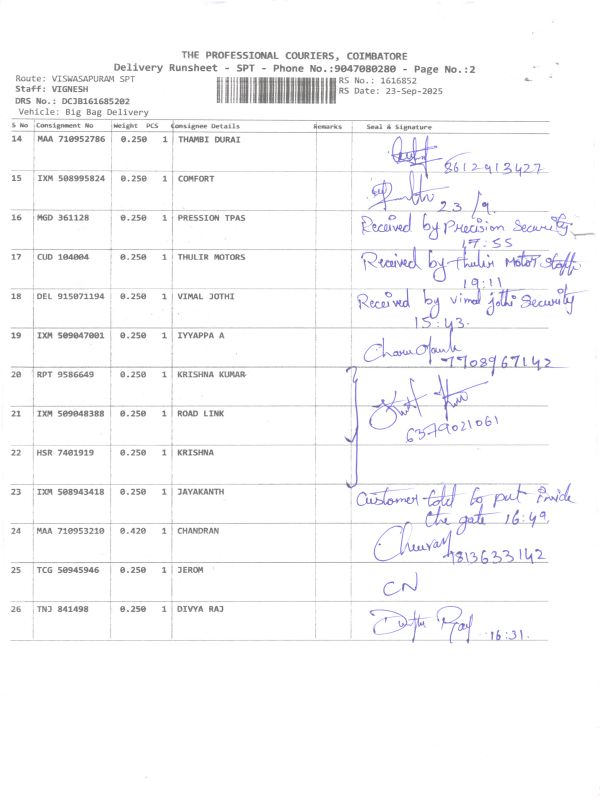 THE PROFESSIONAL COURIERS, COIMBATORE
Delivery Runsheet - SPT - Phone No.:9047080280 - Page No.:2
Route: VISWASAPURAM SPT
Staff: VIGNESH
DRS No.: DCJB161685202
Vehicle: Big Bag Delivery
RS No.: 1616852
RS Date: 23-Sep-2025
S No Consignment No Weight PCS Consignee Details Remarks Seal & Signature
14 MAA 710952786 0.250 1 THAMBI DURAI
8612913427
15 IXM 508995824 0.250 1 COMFORT
23/9
16 MGD 361128 0.250 1 PRESSION TPAS Received by Precision Security
17:55
17 CUD 104004 0.250 1 THULIR MOTORS Received by Thulir Motor Staff
19:11
18 DEL 915071194 0.250 1 VIMAL JOTHI Received by vimal jothi Security
15:43
19 IXM 509047001 0.250 1 IYYAPPA A
7708967142
20 RPT 9586649 0.250 1 KRISHNA KUMAR
21 IXM 509048388 0.250 1 ROAD LINK
6379021061
22 HSR 7401919 0.250 1 KRISHNA
23 IXM 508943418 0.250 1 JAYAKANTH Customer told to put inside
the gate 16:49
24 MAA 710953210 0.420 1 CHANDRAN
9813633142
25 TCG 50945946 0.250 1 JEROM
CN
26 TNJ 841498 0.250 1 DIVYA RAJ
16:31